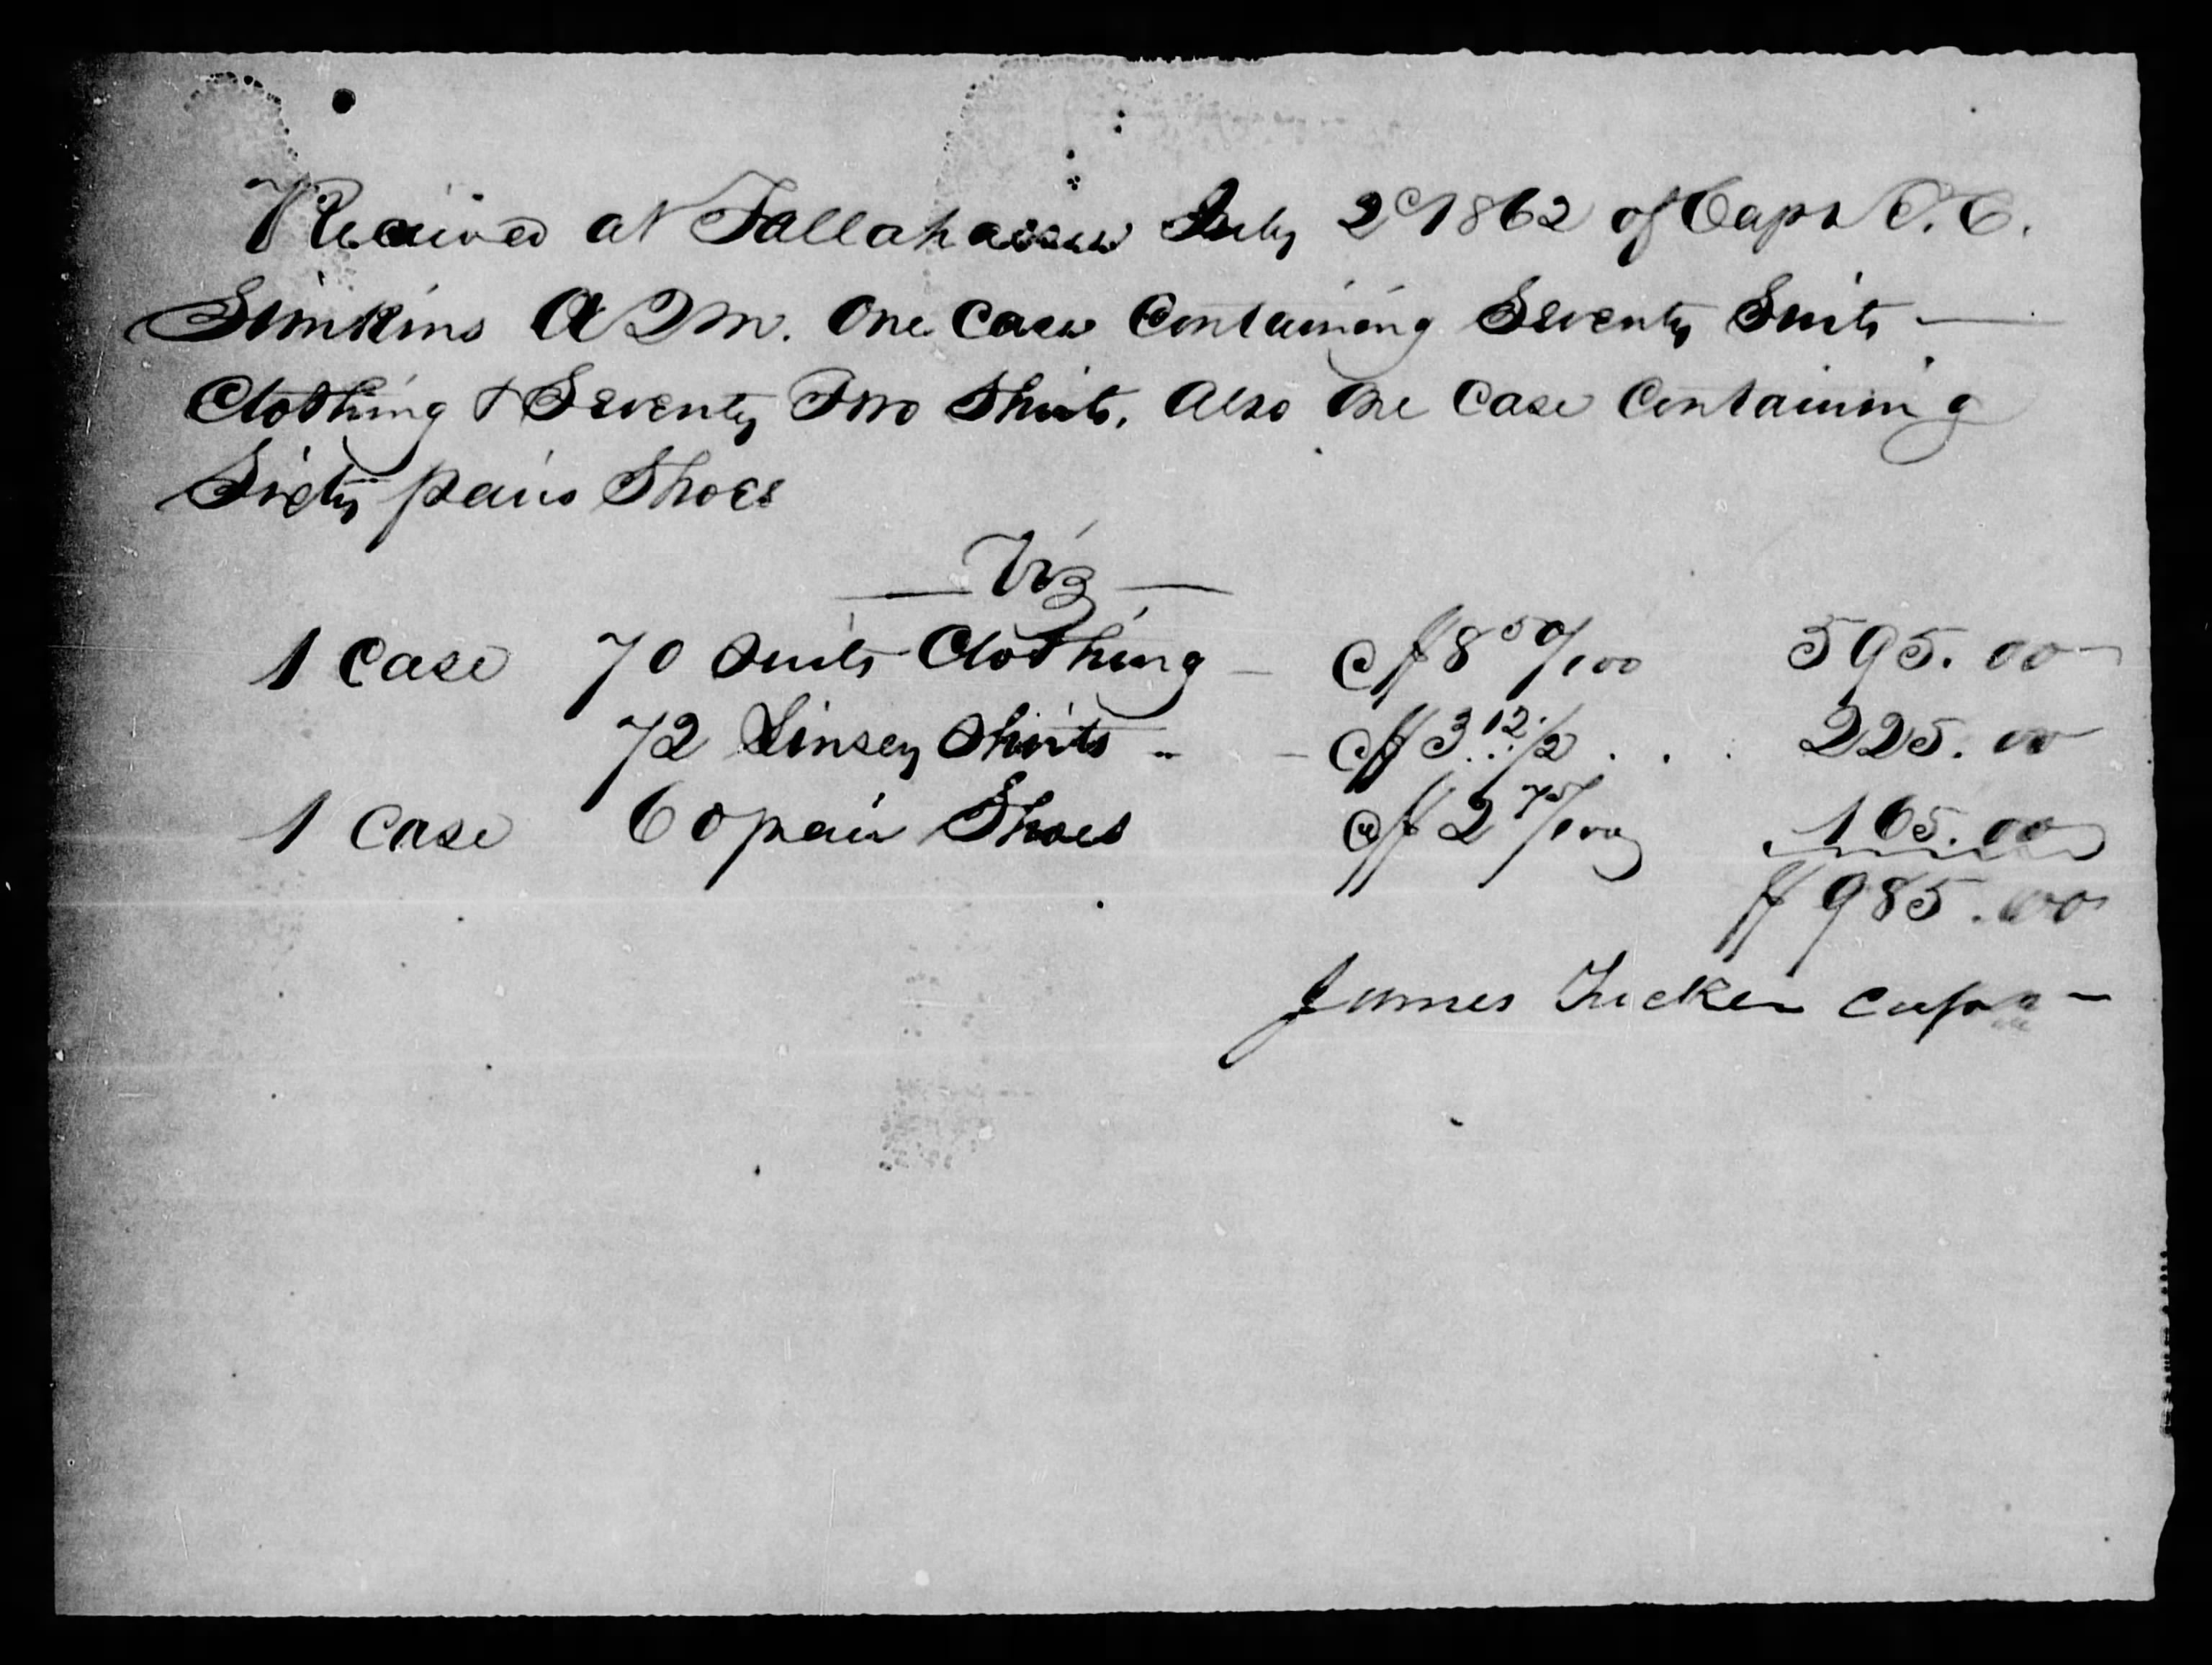 Received at Tallahassee July 2d 1862 of Capt E. C.
Simkins A Q M. One Case Containing Seventy Suits —
Clothing & Seventy Two Shirts. Also One Case Containing
Sixty pairs Shoes
— Viz —
1 Case 70 Suits Clothing — @ $8 50/100 595.00
72 Linsey Shirts " - @ $3 12 1/2 . . . 225.00
1 Case 60 pair Shoes @ $2 75/100 165.00
$985.00
James Tucker Capt —